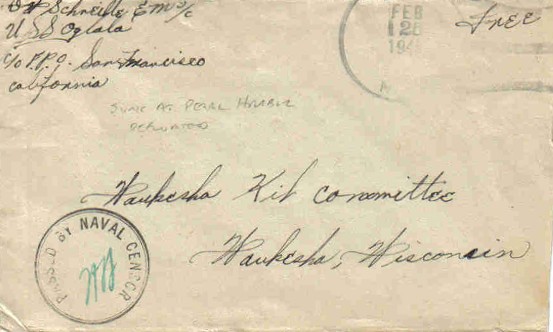 Schneible EM 3/c
USS Oglala
c/o P.P.O. San Francisco
California
Free
FEB
26
194
SUNK AT PEARL HARBOR
Waukesha Kit Committee
Waukesha, Wisconsin
PASSED BY NAVAL CENSOR